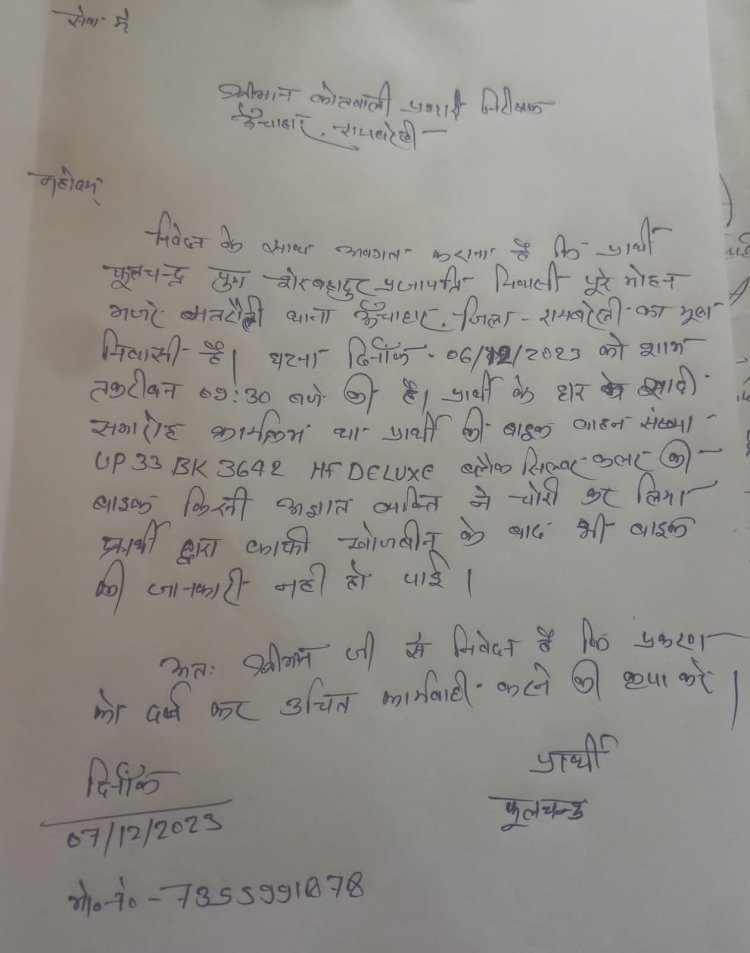 सेवा में
श्रीमान कोतवाली प्रभारी निरीक्षक
ऊँचाहार, रायबरेली
महोदय,
निवेदन के साथ अवगत कराना है कि प्रार्थी
फूलचन्द्र पुत्र शेरबहादुर प्रजापति निवासी पूरे मोहन
मजरे थाना ऊँचाहार, जिला - रायबरेली का मूल
निवासी है। घटना दिनाँक 06/12/2023 को शाम
तकरीबन 07:30 बजे की है। प्रार्थी के द्वार के
समारोह कार्यक्रम था प्रार्थी की बाइक वाहन संख्या
UP 33 BK 3642 HF DELUXE ब्लैक सिल्वर कलर की
बाइक किसी अज्ञात व्यक्ति ने चोरी कर लिया
प्रार्थी द्वारा काफी खोजबीन के बाद भी बाइक
की जानकारी नही हो पाई।
अतः श्रीमान जी से निवेदन है कि प्रकरण
को दर्ज कर उचित कार्यवाही करने की कृपा करें।
प्रार्थी
फूलचन्द्र
दिनाँक
07/12/2023
मो०नं० - 7355991878